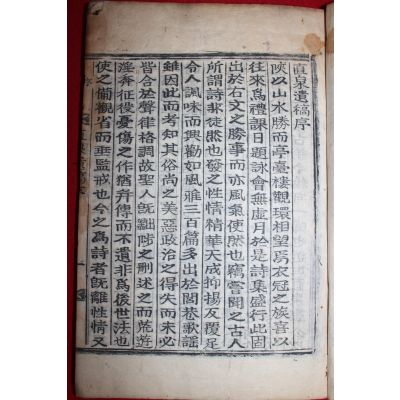 直泉遺稿序
陜以山水勝而亭臺樓觀環相望焉衣冠之族喜以
往來爲禮課日題詠會無虛月於是詩集盛行此固
出於右文之勝事而亦風氣使然也竊嘗聞之古人
所謂詩非徒然也發之性情精華天成抑揚反覆足
令人諷味而興勸如風雅三百篇多出於閭巷歌謡
雖因此而考知其俗尚之美惡政治之得失而未必
皆合於聲律格調故聖人旣黜陟之刪述之而荒遊
淫奔征役憂傷之作猶幷傳而不遺非爲後世法也
使之備觀省而垂監戒也今之爲詩者旣離性情又